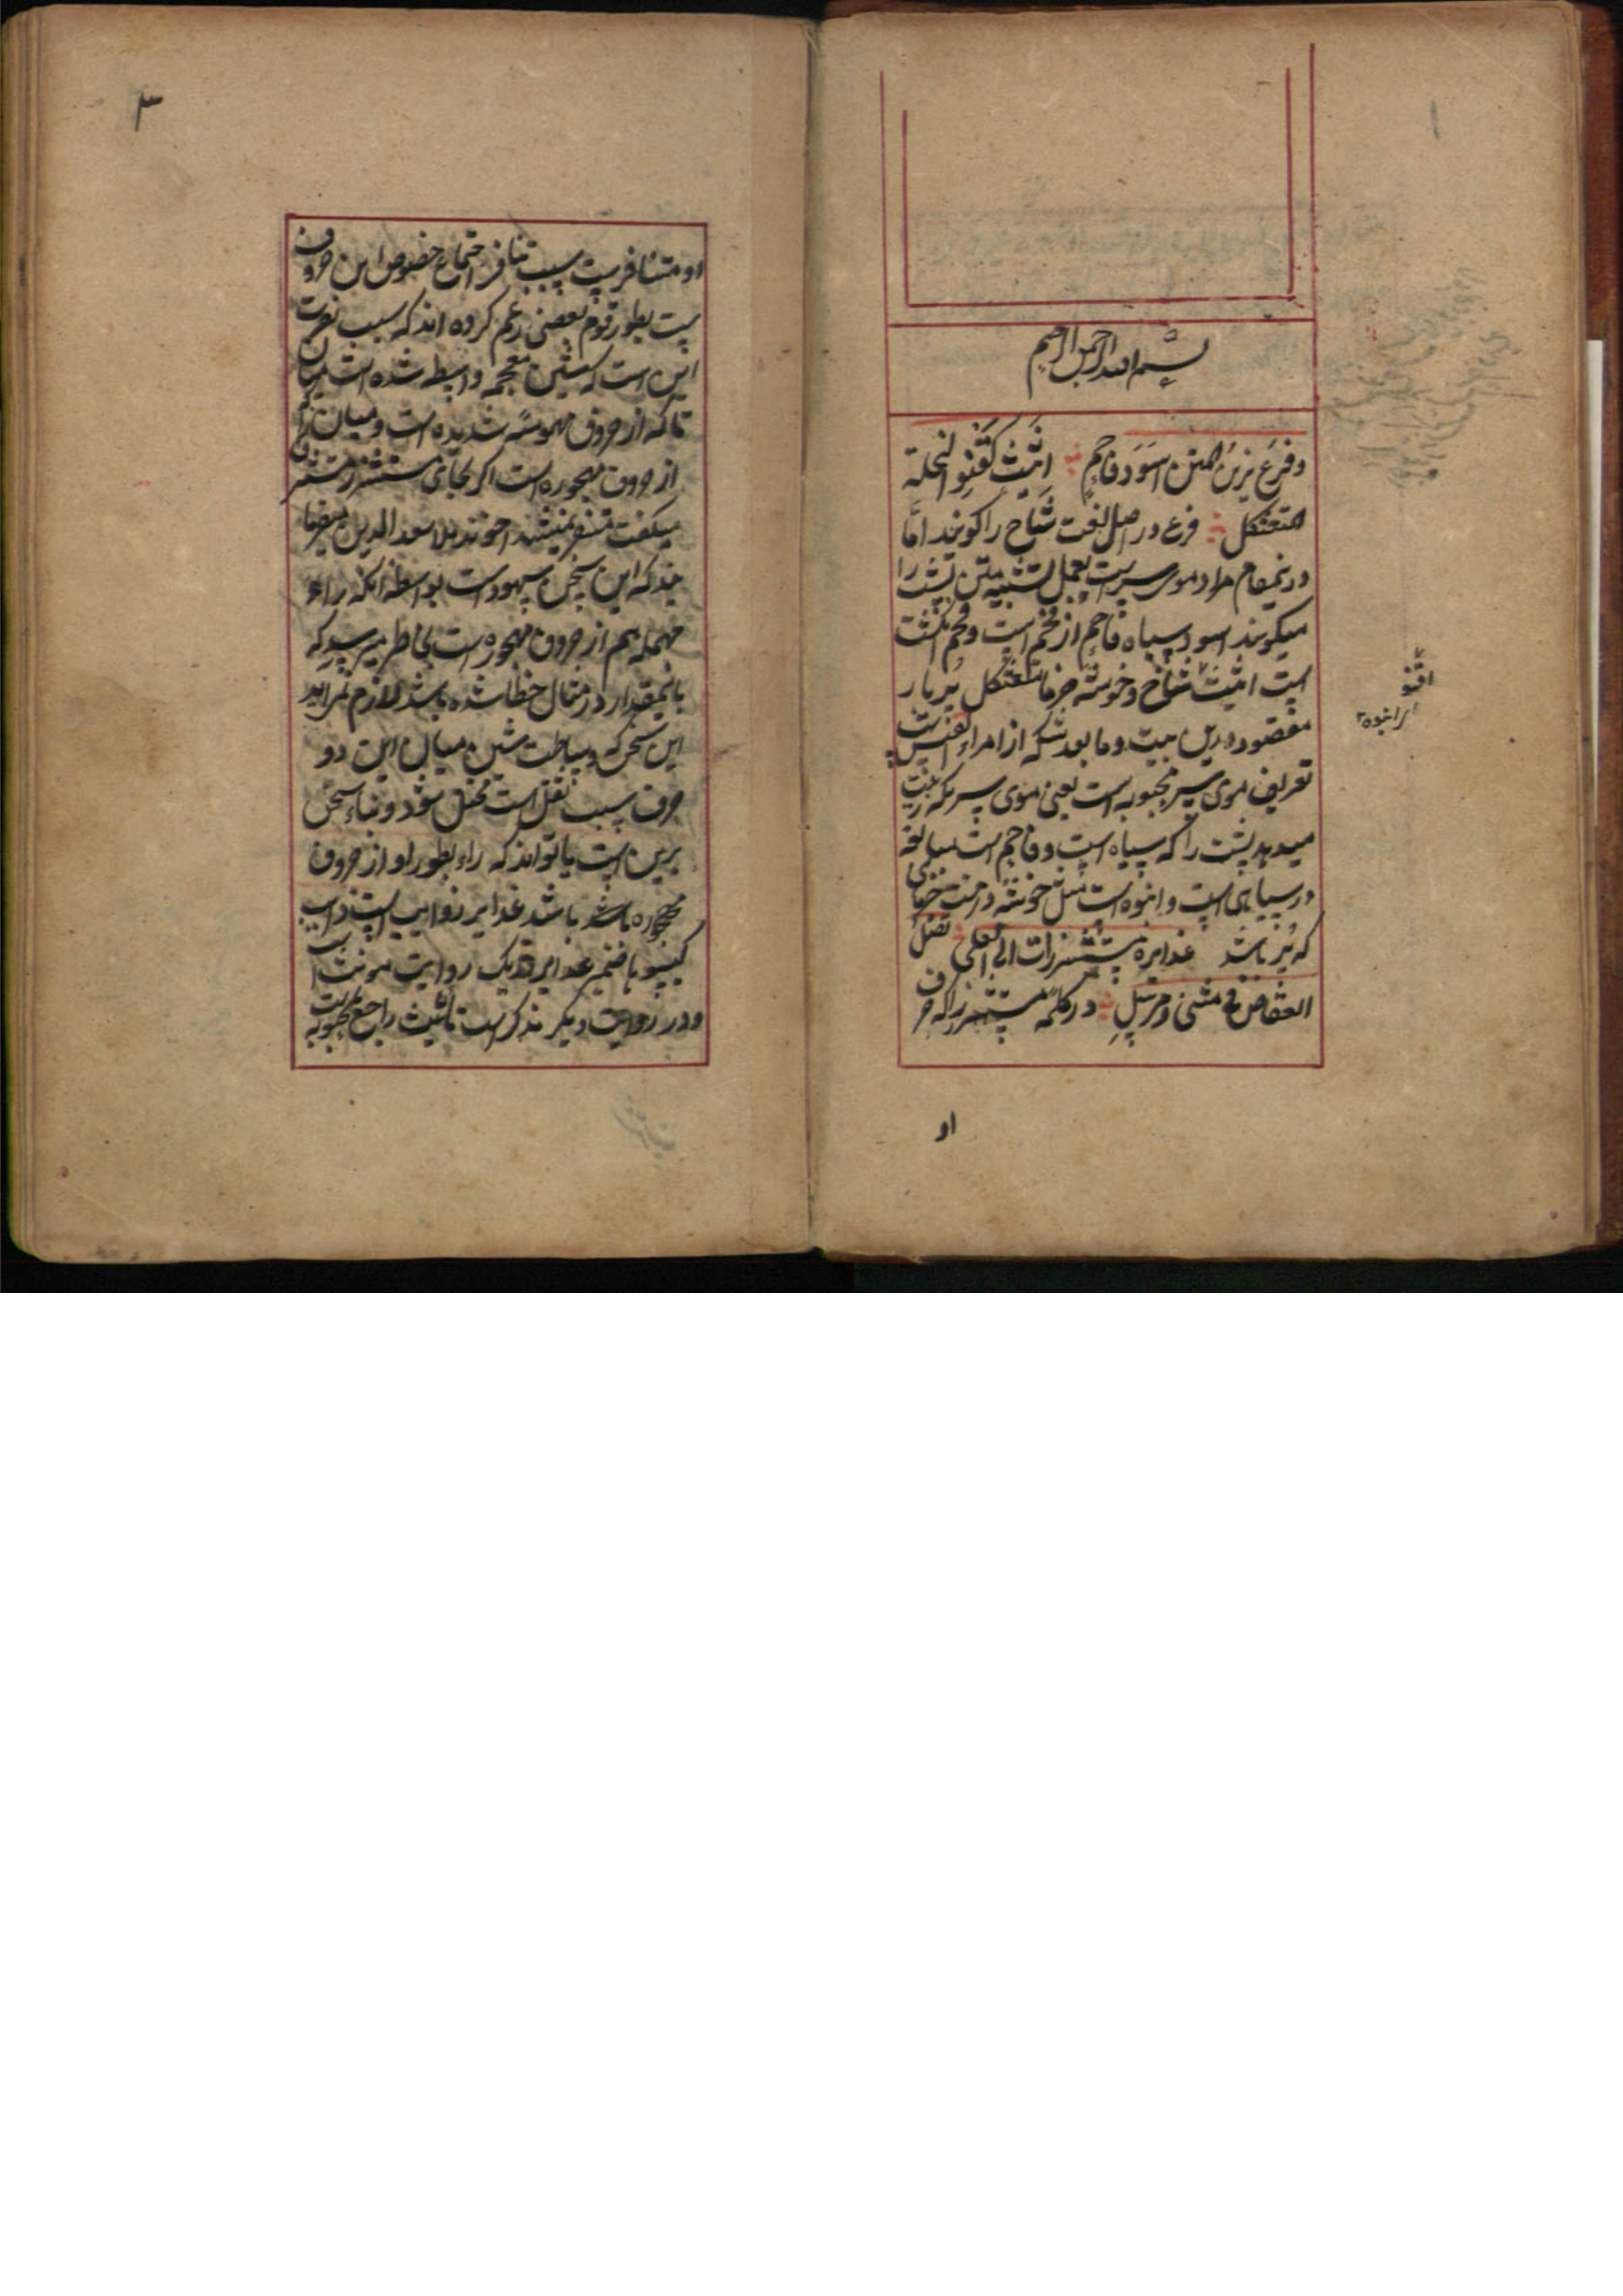 ۱
بسم الله الرحمن الرحیم
وفرع یزین المتن اسود فاحم اثیث کقنو النخلة
المتعثکل فرع در اصل لغت شاخ را کویند اما
درینمقام مراد موی سر است بعمل تشبیه متن پشت را
میکویند اسود سیاه فاحم از فحم است و فحم انکشت
است اثیث قنو شاخ و خوشه خرما متعثکل پر بار
مقصود درین بیت و ما بعدش که از امراء القیس است
تعریف موی سر محبوبه است یعنی موی سر که زینت
میدهد پشت را که سیاه است و فاحم است مبالغه
در سیاهی است و انبوه است مثل خوشه درخت خرمای
که پر باشد غدایره مستشزرات الی العلی تضل
العقاص فی مثنی و مرسل در کلمه مستشزر که حرف
او
اقنو
انبوه
۳
او متنافر است سبب تنافر اجتماع خصوص این حروف
است بطور قوم بعضی زعم کرده اند که سبب نفرت
این است که شین معجمه واسطه شده است میان
تا که از حروف مهموسه شدیده است و میان زا که
از حروف مجهوره است اکر بجای مستشزر مستشرف
میکفت متنفر نمیشد اخوند ملا سعد الدین میفرما
یند که این سخن سهو است بواسطه انکه راء
مهمله هم از حروف مجهوره است بخاطر میرسد که
باینمقدار در مثال خطا شده باشد لازم نمی اید
این سخن که وساطت شین میان این دو
حرف سبب ثقل است مختل شود و بناء سخن
برین است یا تواند که راء بطور او از حروف
مجهوره باشد غدایر ذوایب است ذوایب
کیسو ها ضمیر غدایر در یک روایت مونث است
و در روایت دیکر مذکر است تانیث راجع بمحبوبه است